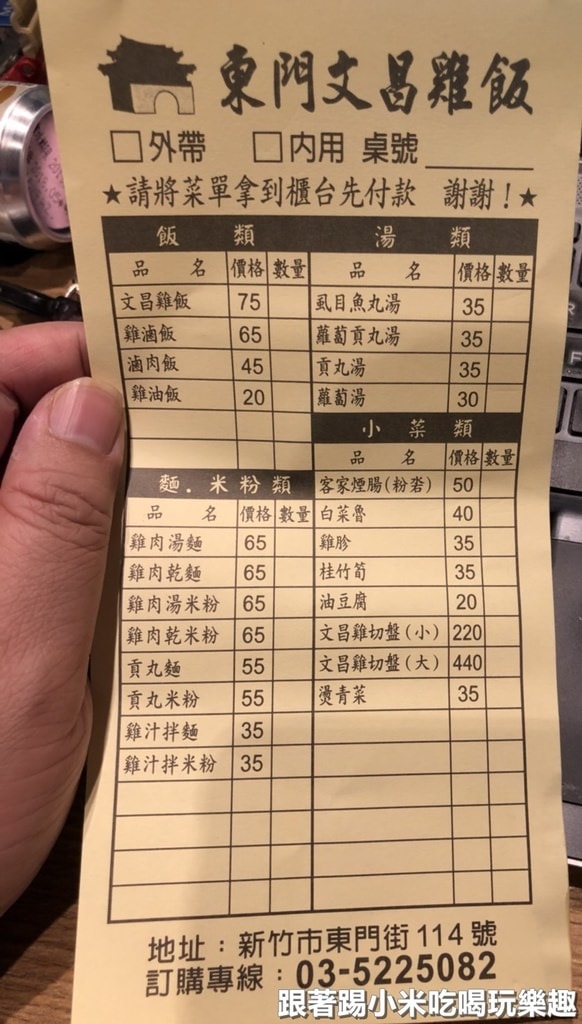 東門文昌雞飯
□外帶 □內用 桌號
★請將菜單拿到櫃台先付款 謝謝！★
飯類
品名 價格 數量
文昌雞飯 75
雞滷飯 65
滷肉飯 45
雞油飯 20
麵．米粉類
品名 價格 數量
雞肉湯麵 65
雞肉乾麵 65
雞肉湯米粉 65
雞肉乾米粉 65
貢丸麵 55
貢丸米粉 55
雞汁拌麵 35
雞汁拌米粉 35
湯類
品名 價格 數量
虱目魚丸湯 35
蘿蔔貢丸湯 35
貢丸湯 35
蘿蔔湯 30
小菜類
品名 價格 數量
客家煙腸(粉砻) 50
白菜魯 40
雞胗 35
桂竹筍 35
油豆腐 20
文昌雞切盤(小) 220
文昌雞切盤(大) 440
燙青菜 35
地址：新竹市東門街114號
訂購專線：03-5225082
跟著踢小米吃喝玩樂趣